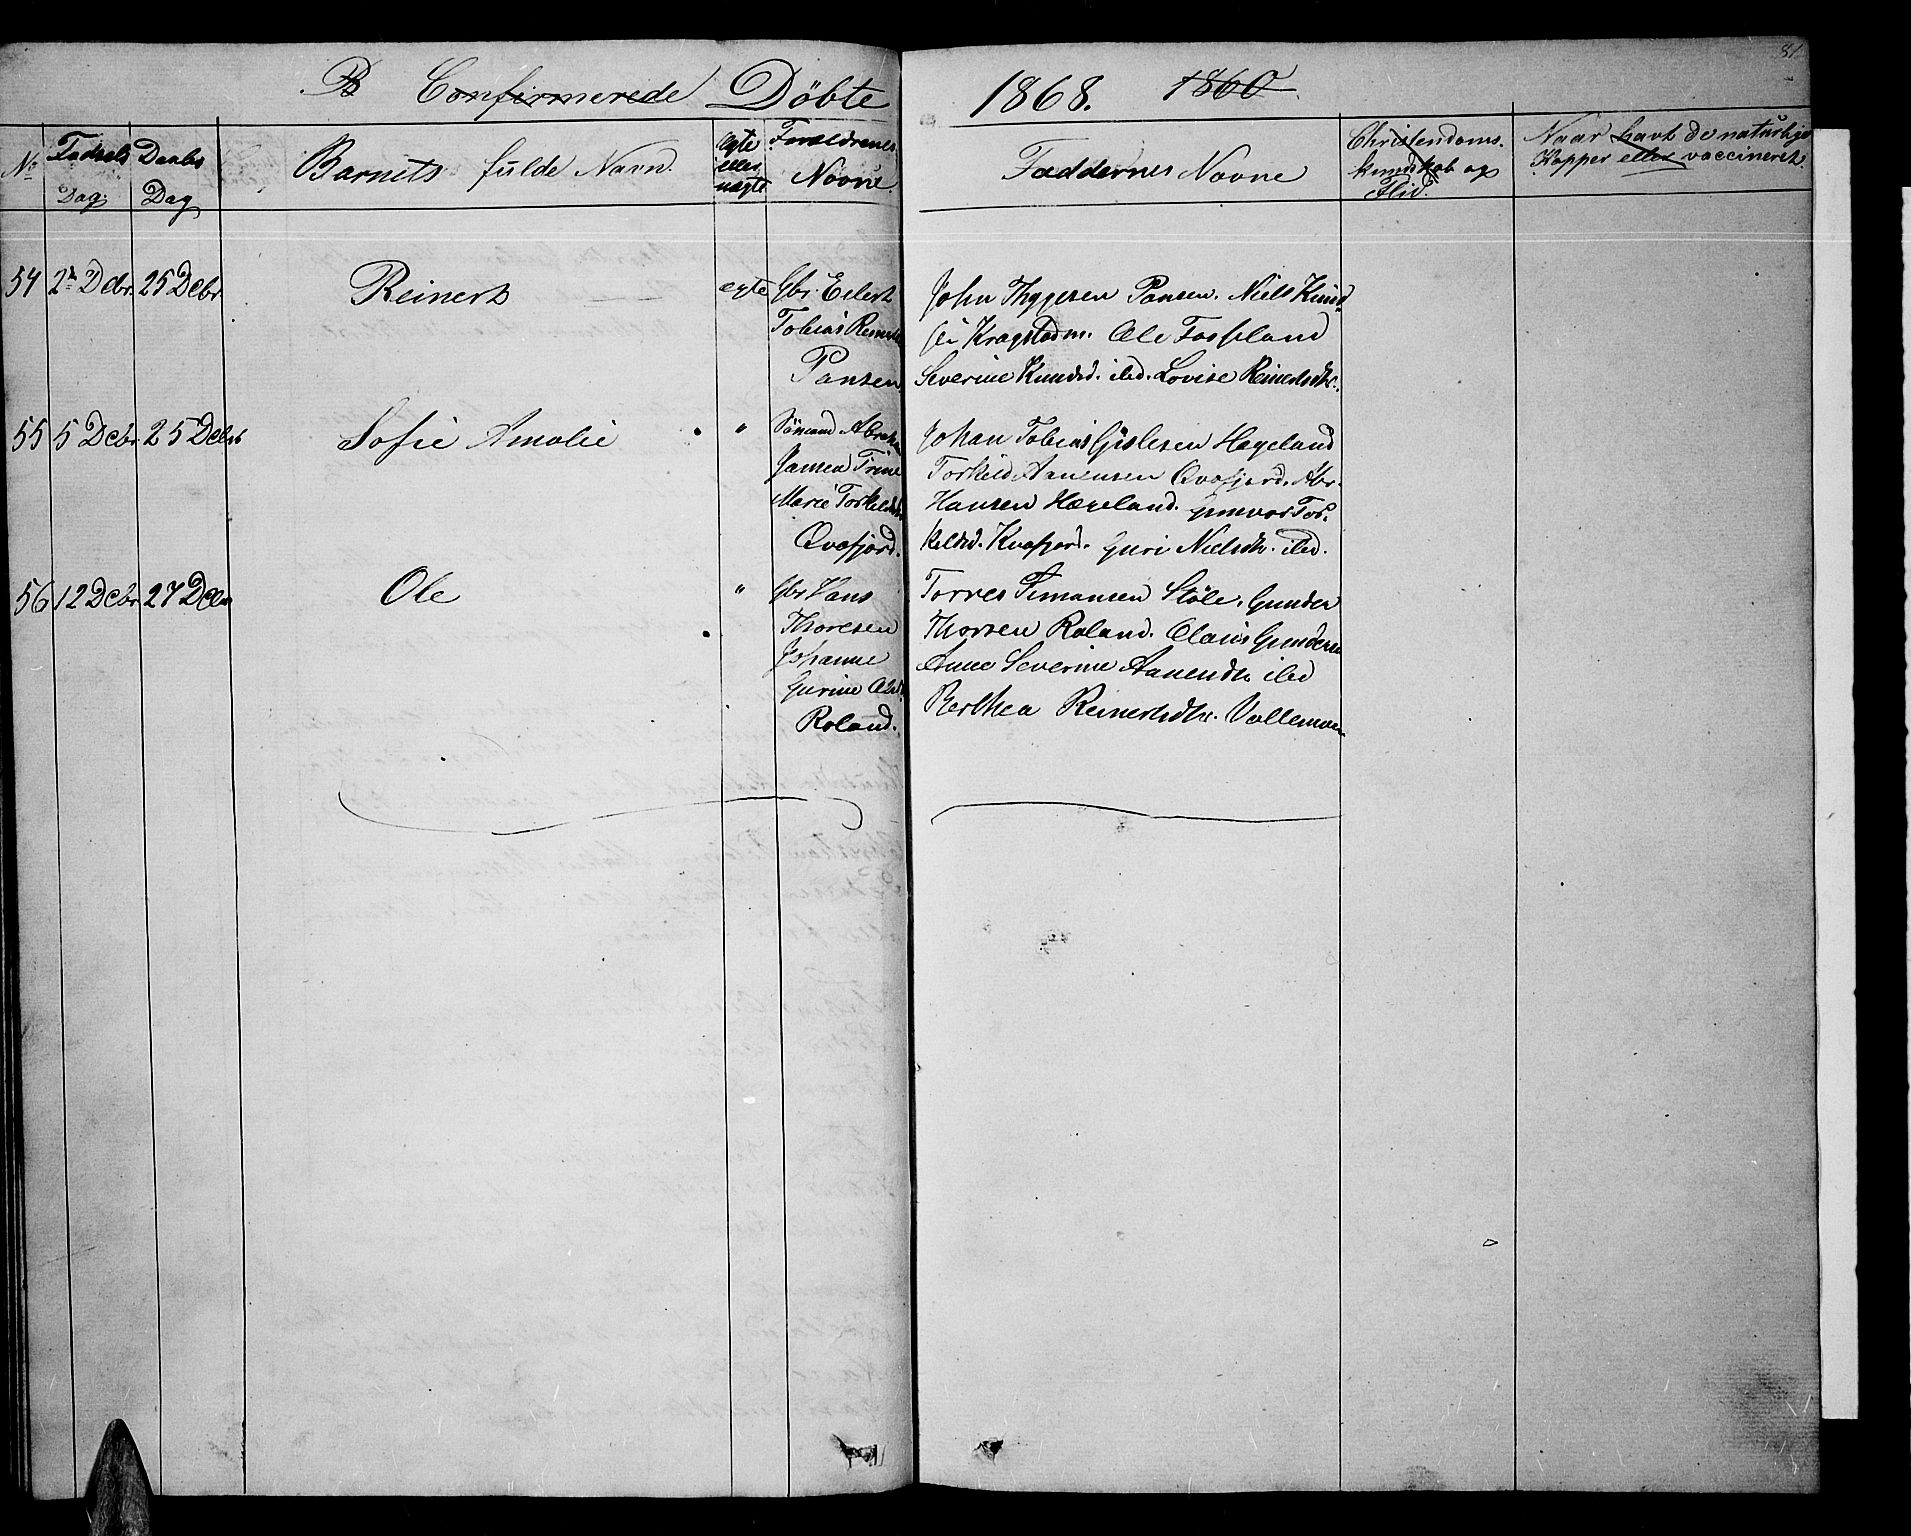 B Confirmerede Döbte 1868. 1860.
81
No
Fødsels Dag
Daabs Dag
Barnets fulde Navn
ægte eller uægte
Forældrenes Navne
Faddernes Navne
Christendoms-
kundskab og
Flid.
Naar havt de naturlige
Kopper eller vaccineret.
54 2den Dcbr. 25 Dcbr. Reinert ægte
Gbr. Eilert
Tobias Reinerts
Pansen
John Thygesen Pansen. Niels Knud
sen Kragstadm. Ole Fossland
Severine Knudsd. ibd. Lovise Reinertsdtr.
55 5 Dcbr. 25 Dcbr. Sofie Amalie "
Sömand Abraham
Jansen Trine
Marie Torkildsdtr.
Qvafjord.
Johan Tobias Gislesen Hægeland
Torkild Aanensen Qvafjord. Abr.
Hansen Hægeland. Gunvor Tor-
keldsd. Kvafjord. Guri Nielsdtr. ibd.
56 12 Dcbr. 27 Dcbr. Ole "
Gbr Hans
Thoresen
Johanne
Gurine Olsd.
Roland.
Torres Simonsen Stöle. Gunder
Thorsen Roland. Claus Gundersen
Anne Severine Aanensdtr. ibd
Berthea Reinertsdtr. Vollemoen